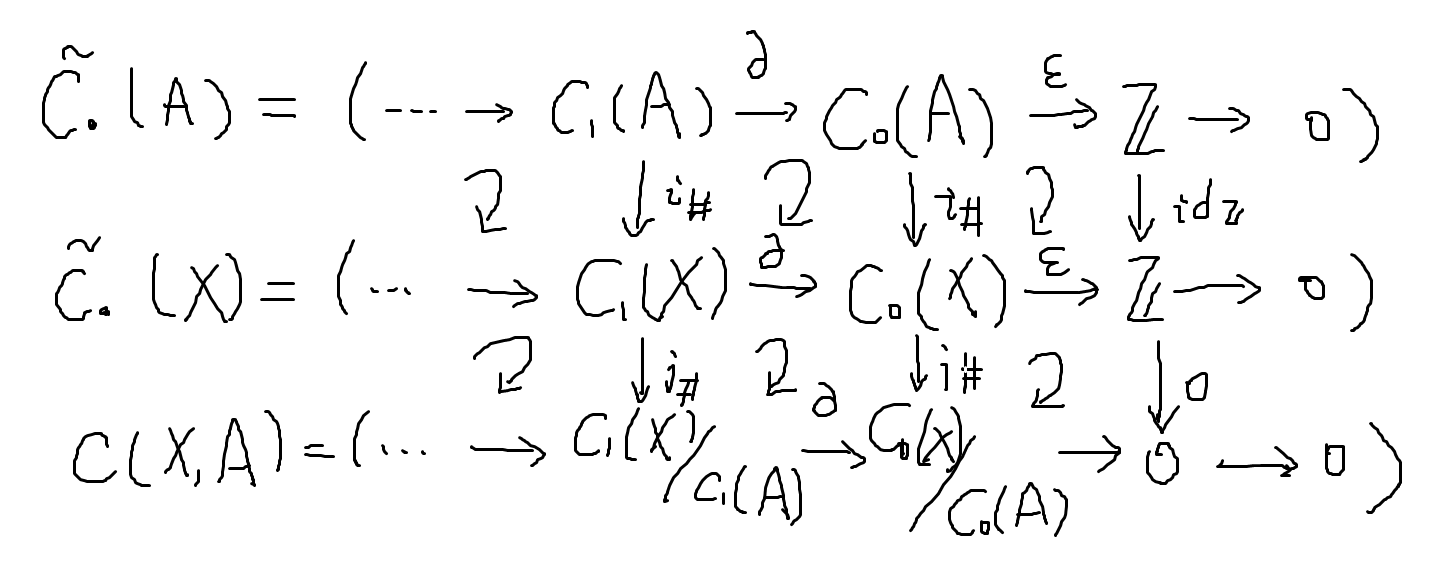 C̃.(A) = (⋯ → C₁(A) ∂→ C₀(A) ε→ ℤ → 0)
↻ ↓ i# ↻ ↓ i# ↻ ↓ idℤ
C̃.(X) = (⋯ → C₁(X) ∂→ C₀(X) ε→ ℤ → 0)
↻ ↓ j# ↻ ↓ j# ↻ ↓ 0
C(X,A) = (⋯ → C₁(X)/C₁(A) ∂→ C₀(X)/C₀(A) → 0 → 0)